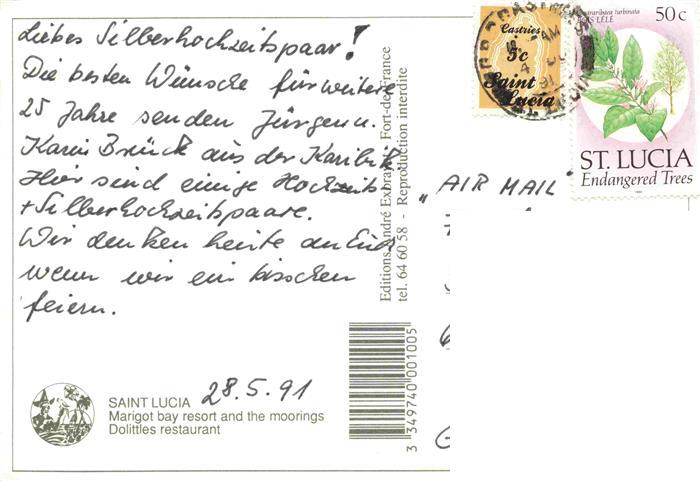 Liebes Silberhochzeitspaar!
Die besten Wünsche für weitere
25 Jahre senden Jürgen u.
Karin Brück aus der Karibik
Hier sind einige Hochzeits
+ Silberhochzeitspaare.
Wir denken heute an Euch
wenn wir ein bisschen
feiern.
SAINT LUCIA 28.5.91
Marigot bay resort and the moorings
Dolittles restaurant
Editions André Exbrayat Fort-de-France
tel. 64 60 58 - Reproduction interdite
3 349740 001005
"AIR MAIL"
Castries
5c
Saint
Lucia
50 c
BOIS LÉLÉ
ST. LUCIA
Endangered Trees